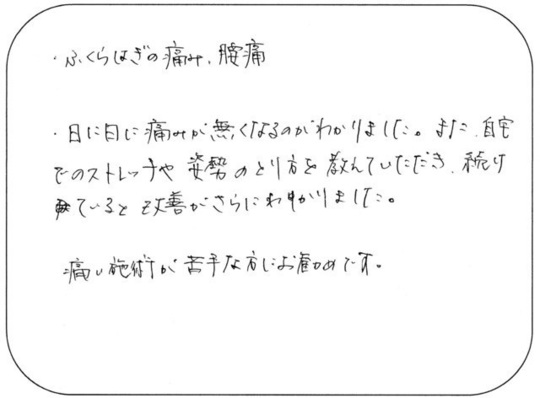 ・ふくらはぎの痛み、腰痛
・日に日に痛みが無くなるのがわかりました。また、自宅
でのストレッチや姿勢のとり方を教えていただき、続け
ていると改善がさらにわかりました。
痛い施術が苦手な方にお勧めです。